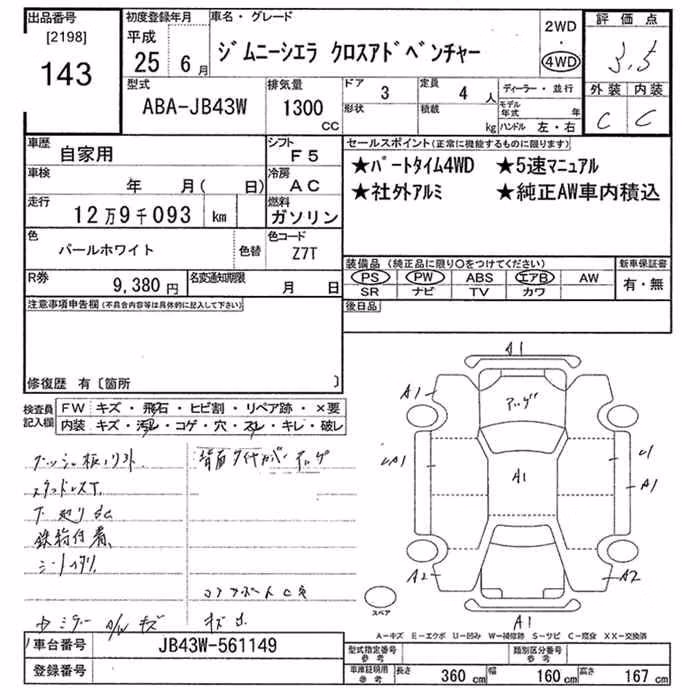 出品番号
[2198]
143
初度登録年月
平成
25 6月
車名・グレード
ジムニーシエラ クロスアドベンチャー
2WD
・
4WD
評価点
3.5
外装 内装
C C
型式
ABA-JB43W
排気量
1300
CC
ドア 3
形状
定員 4 人
積載 kg
ディーラー・並行
モデル年式 年
ハンドル 左・右
車歴
自家用
シフト
F5
車検
年 月( 日)
冷房
AC
走行
12万9千093 km
燃料
ガソリン
色
パールホワイト
色替
色コード
Z7T
R券
9,380円
名変通知期限
月 日
セールスポイント(正常に機能するものに限ります)
★パートタイム4WD ★5速マニュアル
★社外アルミ ★純正AW車内積込
装備品 (純正品に限り○をつけてください)
PS PW ABS エアB AW
SR ナビ TV カワ
新車保証書
有・無
後日品
注意事項申告欄(不具合内容等は具体的に記入して下さい)
修復歴 有〔箇所 〕
検査員
記入欄
FW キズ・飛石・ヒビ割・リペア跡・×要
内装 キズ・汚レ・コゲ・穴・スレ・キレ・破レ
スタッドレスT
下廻り
鉄粉付着
背面タイヤカバー
キズ
A1
A1
A1
A1
A1
A2
A2
A1
スペア
A-キズ E-エクボ U-凹み W-補修跡 S-サビ C-腐食 XX-交換済
車台番号
JB43W-561149
登録番号
型式指定番号
参考
類別区分番号
参考
車庫証明用
参考
長さ 360 cm 幅 160 cm 高さ 167 cm